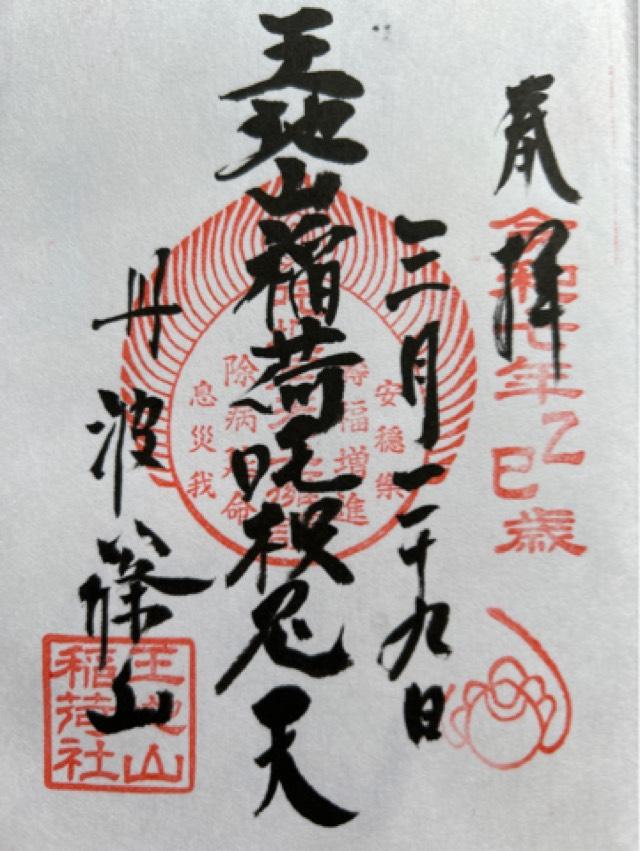 奉拝
令和七年
乙巳歳
三月二十九日
王地山稲荷吒枳尼天
丹波篠山
安穩樂
福增進
除病
命
息災我
王地山
稲荷社